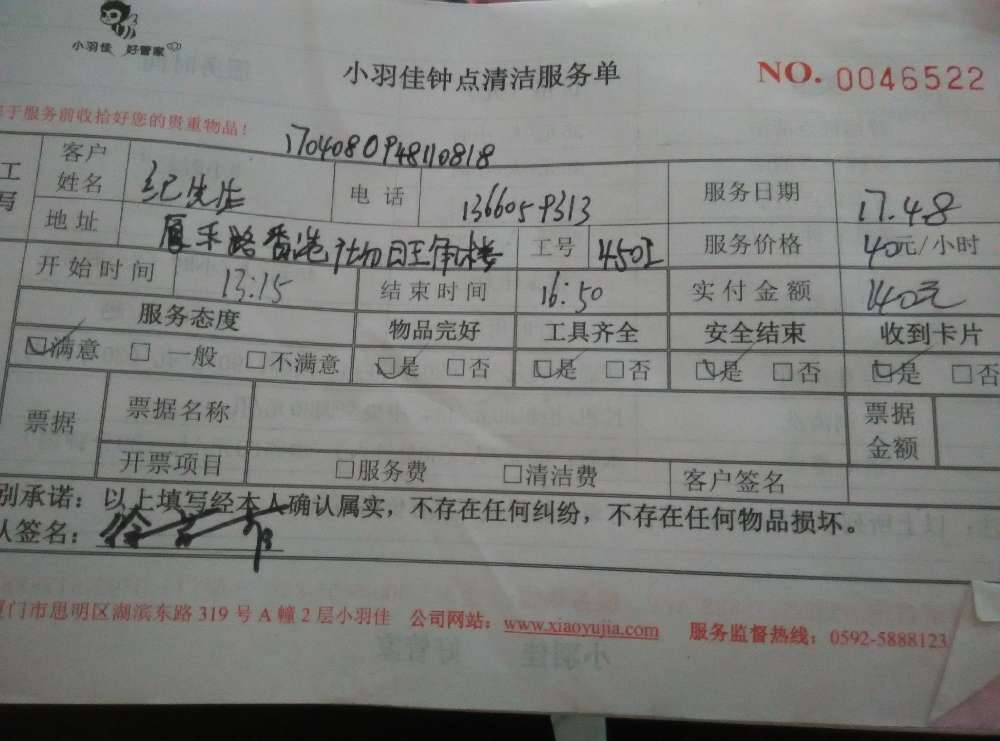 小羽佳 好管家
小羽佳钟点清洁服务单
NO. 0046522
于服务前收拾好您的贵重物品！
1704080948110818
客户姓名 纪先生 电话 1366059313 服务日期 17.4.8
地址 厦禾路香港 工号 服务价格 40元/小时
开始时间 13:15 结束时间 16:50 实付金额 140元
服务态度 物品完好 工具齐全 安全结束 收到卡片
☑满意 □一般 □不满意 ☑是 □否 ☑是 □否 ☑是 □否 ☑是 □否
票据 票据名称 票据金额
开票项目 □服务费 □清洁费 客户签名
别承诺：以上填写经本人确认属实，不存在任何纠纷，不存在任何物品损坏。
人签名：
门市思明区湖滨东路 319 号 A 幢 2 层小羽佳 公司网站：www.xiaoyujia.com 服务监督热线：0592-5888123